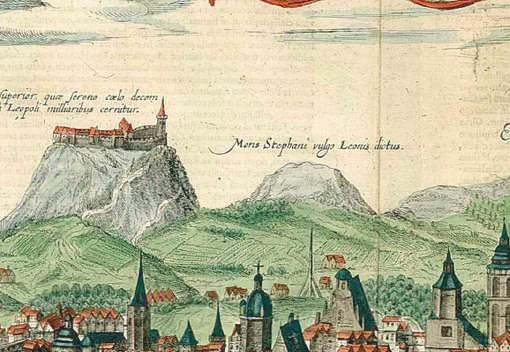 superior, quæ sereno cœlo decem
Leopoli milliaribus cernitur.
Mons Stephani vulgo Leonis dictus.